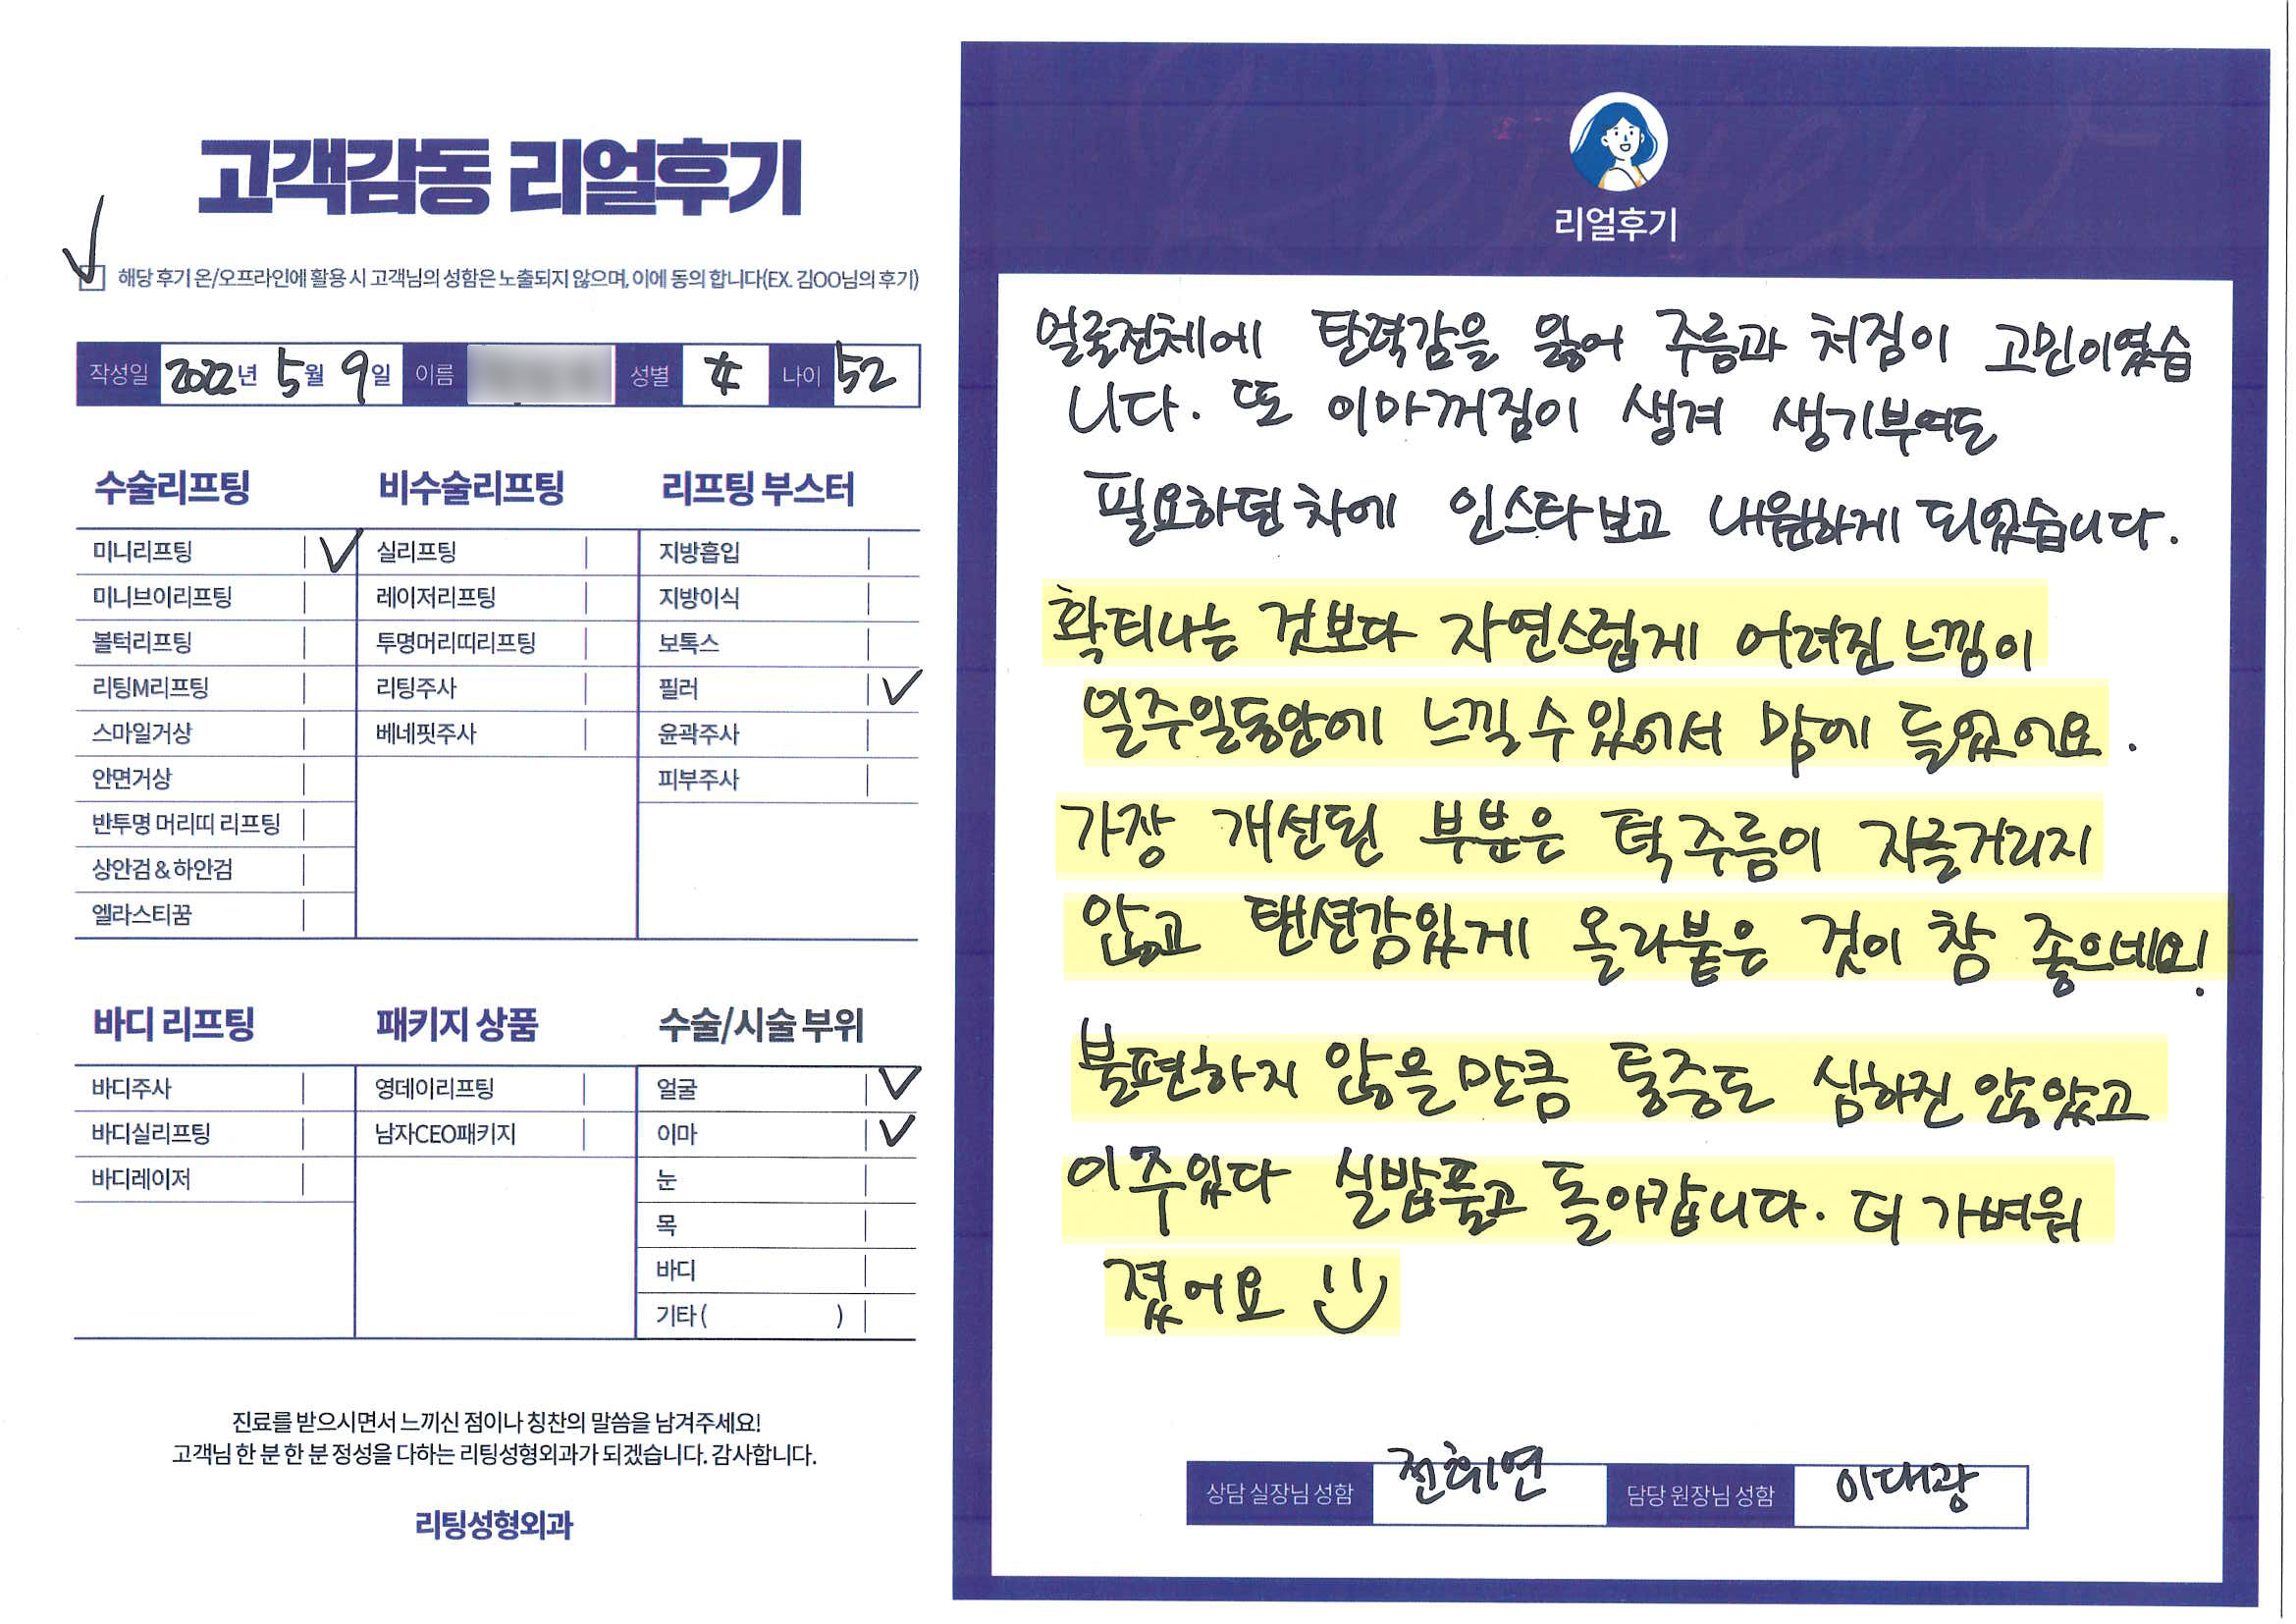 고객감동 리얼후기
해당 후기 온/오프라인에 활용 시 고객님의 성함은 노출되지 않으며, 이에 동의 합니다(EX. 김OO님의 후기)
작성일 2022년 5월 9일 이름 성별 女 나이 52
수술리프팅
미니리프팅
미니브이리프팅
볼턱리프팅
리팅M리프팅
스마일거상
안면거상
반투명 머리띠 리프팅
상안검 & 하안검
엘라스티꿈
비수술리프팅
실리프팅
레이저리프팅
투명머리띠리프팅
리팅주사
베네핏주사
리프팅 부스터
지방흡입
지방이식
보톡스
필러
윤곽주사
피부주사
바디 리프팅
바디주사
바디실리프팅
바디레이저
패키지 상품
영데이리프팅
남자CEO패키지
수술/시술 부위
얼굴
이마
눈
목
바디
기타 ( )
진료를 받으시면서 느끼신 점이나 칭찬의 말씀을 남겨주세요!
고객님 한 분 한 분 정성을 다하는 리팅성형외과가 되겠습니다. 감사합니다.
리팅성형외과
Review
리얼후기
얼굴전체에 탄력감을 잃어 주름과 처짐이 고민이였습
니다. 또 이마꺼짐이 생겨 생기부여도
필요하던차에 인스타보고 내원하게 되었습니다.
확티나는 것보다 자연스럽게 어려진 느낌이
일주일동안에 느낄수있어서 맘에 들었어요.
가장 개선된 부분은 턱주름이 자글거리지
않고 탠션감있게 올라붙은 것이 참 좋으네요!
불편하지 않을만큼 통증도 심하진 않았고
이주있다 실밥풀고 돌아갑니다. 더 가벼워
졌어요
상담 실장님 성함 전희연 담당 원장님 성함 이대광